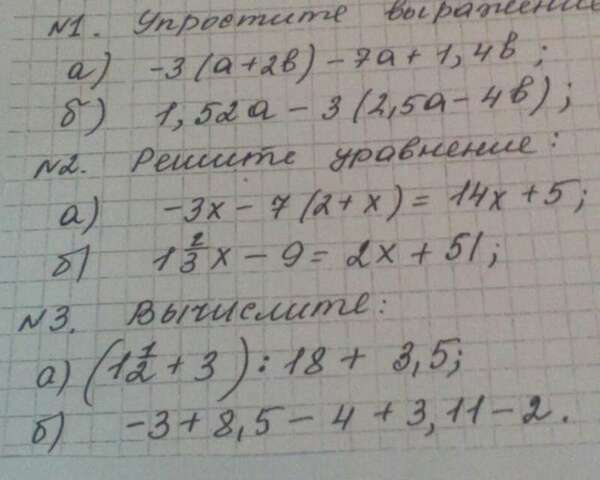 N1. Упростите выражение
а) -3(a+2b) - 7a + 1,4b ;
б) 1,52a - 3(2,5a - 4b) ;
N2. Решите уравнение :
а) -3x - 7(2+x) = 14x + 5 ;
б) 1 2/3 x - 9 = 2x + 51 ;
N3. Вычислите :
а) (1 1/2 + 3) : 18 + 3,5 ;
б) -3 + 8,5 - 4 + 3,11 - 2 .